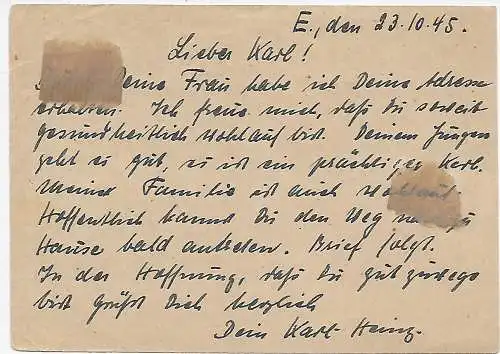 E., den 23.10.45.
Lieber Karl!
Deine Frau habe ich Deine Adresse
erhalten. Ich freue mich, daß Du soweit
gesundheitlich wohlauf bist. Deinem Jungen
geht es gut, es ist ein prächtiger Kerl.
Meine Familie ist auch wohlauf.
Hoffentlich kannst Du den Weg nach zu
Hause bald antreten. Brief folgt.
In der Hoffnung, daß Du gut zuwege
bist grüßt Dich herzlich
Dein Karl-Heinz.